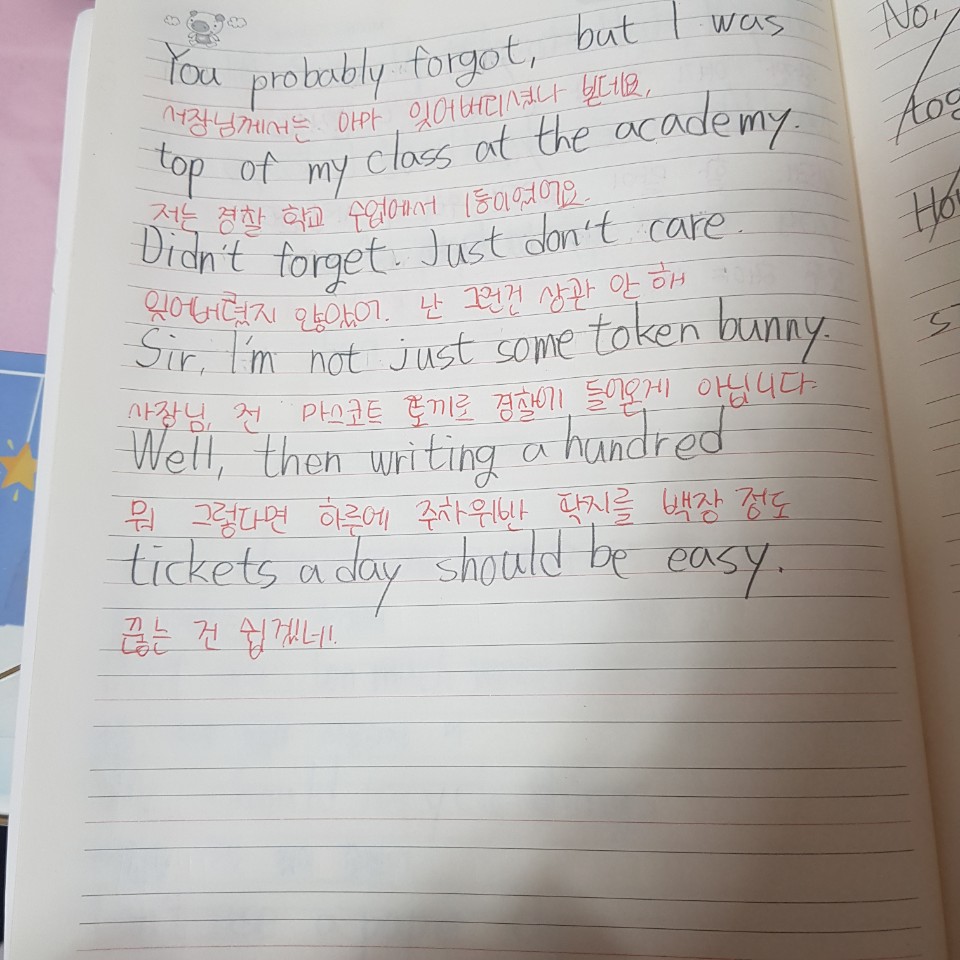 You probably forgot, but I was
서장님께서는 아마 잊어버리셨나 본데요,
top of my class at the academy.
저는 경찰 학교 수업에서 1등이었어요.
Didn't forget. Just don't care.
잊어버렸지 않았어. 난 그런건 상관 안 해
Sir, I'm not just some token bunny.
사장님, 전 마스코트 토끼로 경찰에 들어온게 아닙니다.
Well, then writing a hundred
뭐 그렇다면 하루에 주차위반 딱지를 백장 정도
tickets a day should be easy.
끊는 건 쉽겠네!
No,
tog
Ho
s